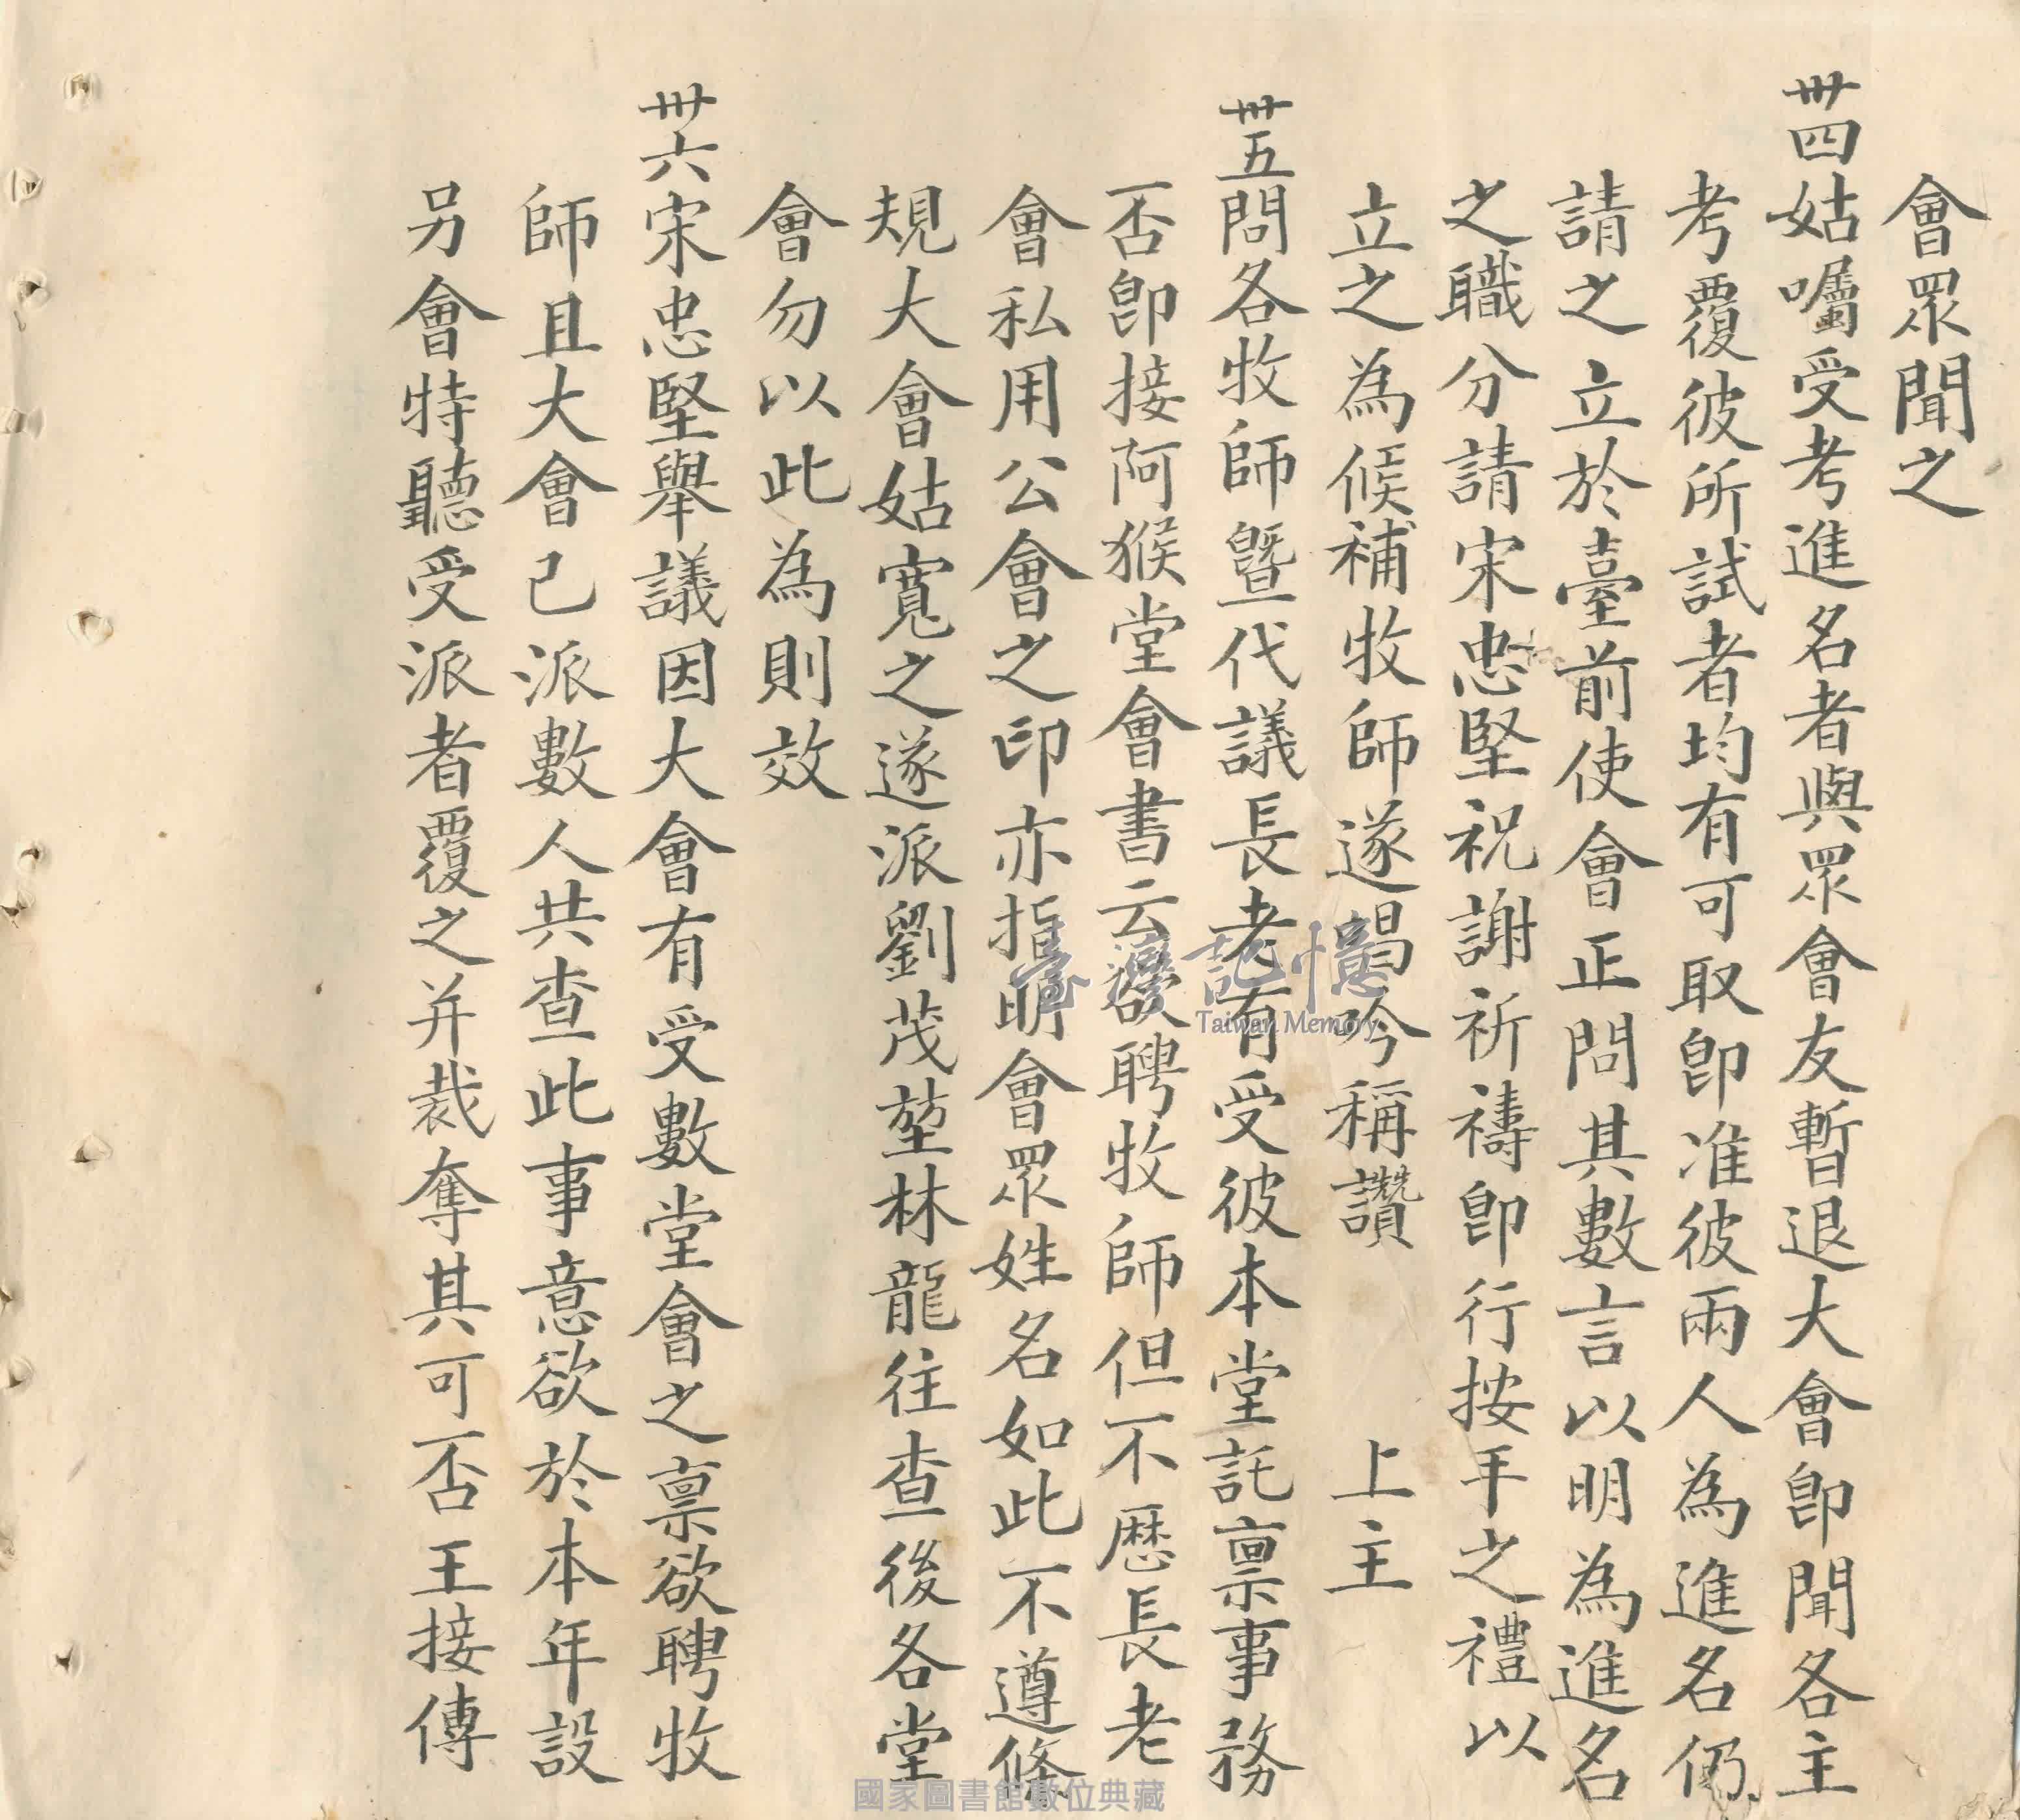 會眾聞之
卅四姑囑受考進名者與眾會友暫退大會卽聞各主
考覆彼所試者均有可取卽准彼兩人為進名仍
請之立於臺前使會正問其數言以明為進名
之職分請宋忠堅祝謝祈禱卽行按手之禮以
立之為候補牧師遂唱吟稱讚　上主
卅五問各牧師暨代議長老有受彼本堂託稟事務
否卽接阿猴堂會書云欲聘牧師但不歷長老
會私用公會之印亦指明會眾姓名如此不遵條
規大會姑寬之遂派劉茂堃林龍往查後各堂
會勿以此為則效
卅六宋忠堅舉議因大會有受數堂會之稟欲聘牧
師且大會已派數人共查此事意欲於本年設
另會特聽受派者覆之并裁奪其可否王接傳
臺灣記憶
Taiwan Memory
國家圖書館數位典藏